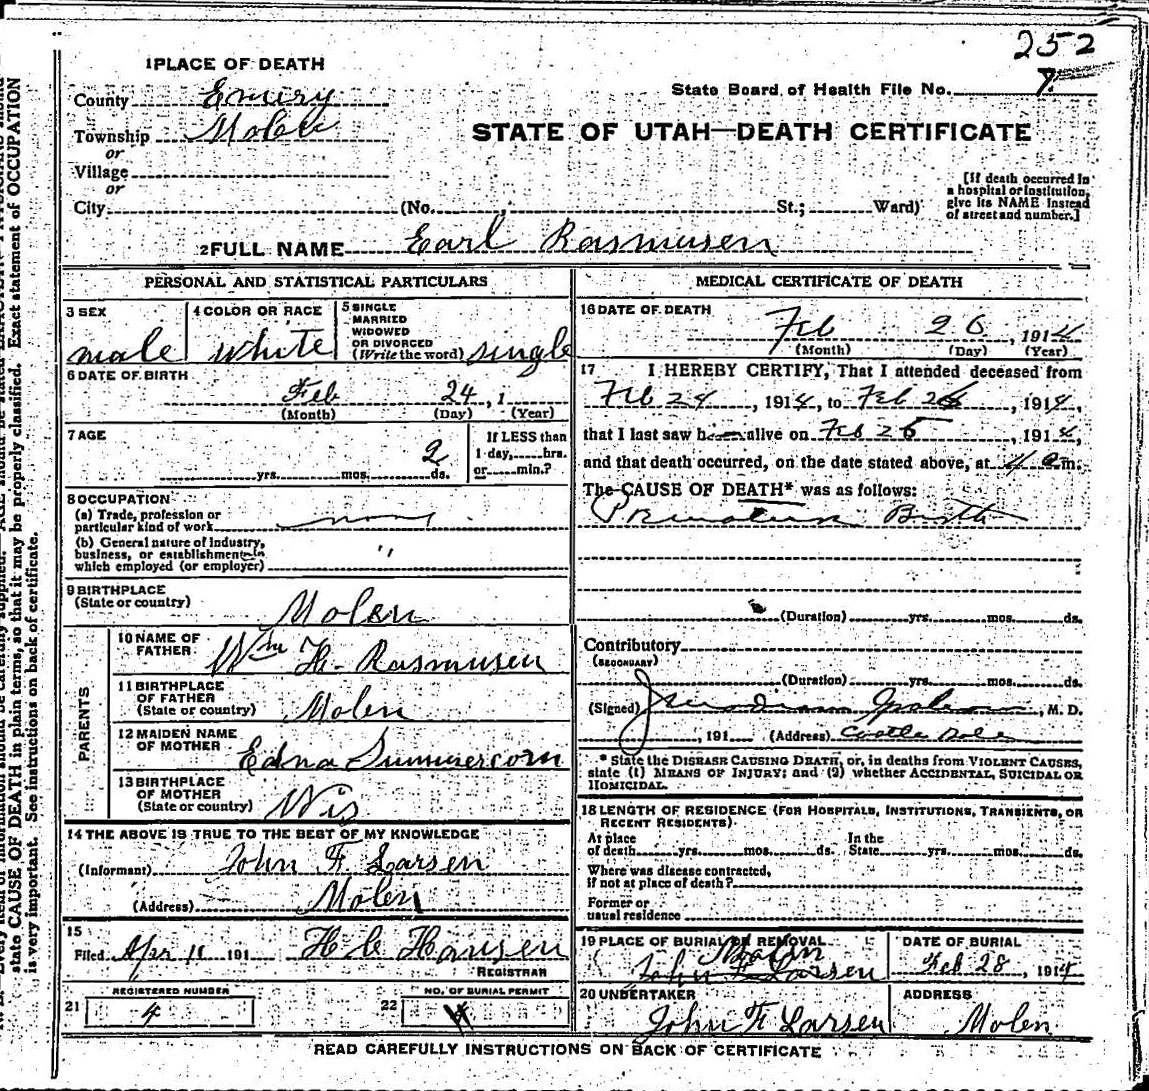 252
1 PLACE OF DEATH
State Board of Health File No. 7
County Emery
Township Molen
or
Village
or
City (No. , St.; Ward)
STATE OF UTAH—DEATH CERTIFICATE
[If death occurred in
a hospital or institution,
give its NAME instead
of street and number.]
2 FULL NAME Earl Rasmusen
PERSONAL AND STATISTICAL PARTICULARS
3 SEX
male
4 COLOR OR RACE
white
5 SINGLE
MARRIED
WIDOWED
OR DIVORCED
(Write the word) single
6 DATE OF BIRTH
Feb 24, 1
(Month) (Day) (Year)
7 AGE
If LESS than
1 day, hrs.
or min.?
yrs. mos. 2 ds.
8 OCCUPATION
(a) Trade, profession or
particular kind of work none
(b) General nature of Industry,
business, or establishment in
which employed (or employer) "
9 BIRTHPLACE
(State or country) Molen
PARENTS
10 NAME OF
FATHER Wm H. Rasmusen
11 BIRTHPLACE
OF FATHER
(State or country) Molen
12 MAIDEN NAME
OF MOTHER Edna Summercorn
13 BIRTHPLACE
OF MOTHER
(State or country) Wis
14 THE ABOVE IS TRUE TO THE BEST OF MY KNOWLEDGE
(Informant) John F. Larsen
(Address) Molen
15
Filed Apr 11 191 H C Hansen
REGISTRAR
REGISTERED NUMBER
21 4
NO. OF BURIAL PERMIT
22 4
MEDICAL CERTIFICATE OF DEATH
16 DATE OF DEATH
Feb 26, 1914
(Month) (Day) (Year)
17 I HEREBY CERTIFY, That I attended deceased from
Feb 24, 1914, to Feb 26, 1914,
that I last saw h alive on Feb 25, 1914,
and that death occurred, on the date stated above, at 4 a m.
The CAUSE OF DEATH* was as follows:
Premature Birth
(Duration) yrs. mos. ds.
Contributory
(SECONDARY)
(Duration) yrs. mos. ds.
(Signed) , M. D.
, 191 (Address) Castle Dale
* State the DISEASE CAUSING DEATH, or, in deaths from VIOLENT CAUSES,
state (1) MEANS OF INJURY; and (2) whether ACCIDENTAL, SUICIDAL OR
HOMICIDAL.
18 LENGTH OF RESIDENCE (FOR HOSPITALS, INSTITUTIONS, TRANSIENTS, OR
RECENT RESIDENTS).
At place In the
of death yrs. mos. ds. State yrs. mos. ds.
Where was disease contracted,
if not at place of death?
Former or
usual residence
19 PLACE OF BURIAL OR REMOVAL
Molen
John F Larsen
DATE OF BURIAL
Feb 28, 1914
20 UNDERTAKER
John F Larsen
ADDRESS
Molen
READ CAREFULLY INSTRUCTIONS ON BACK OF CERTIFICATE
state CAUSE OF DEATH in plain terms, so that it may be properly classified. Exact statement of OCCUPATION
is very important. See instructions on back of certificate.